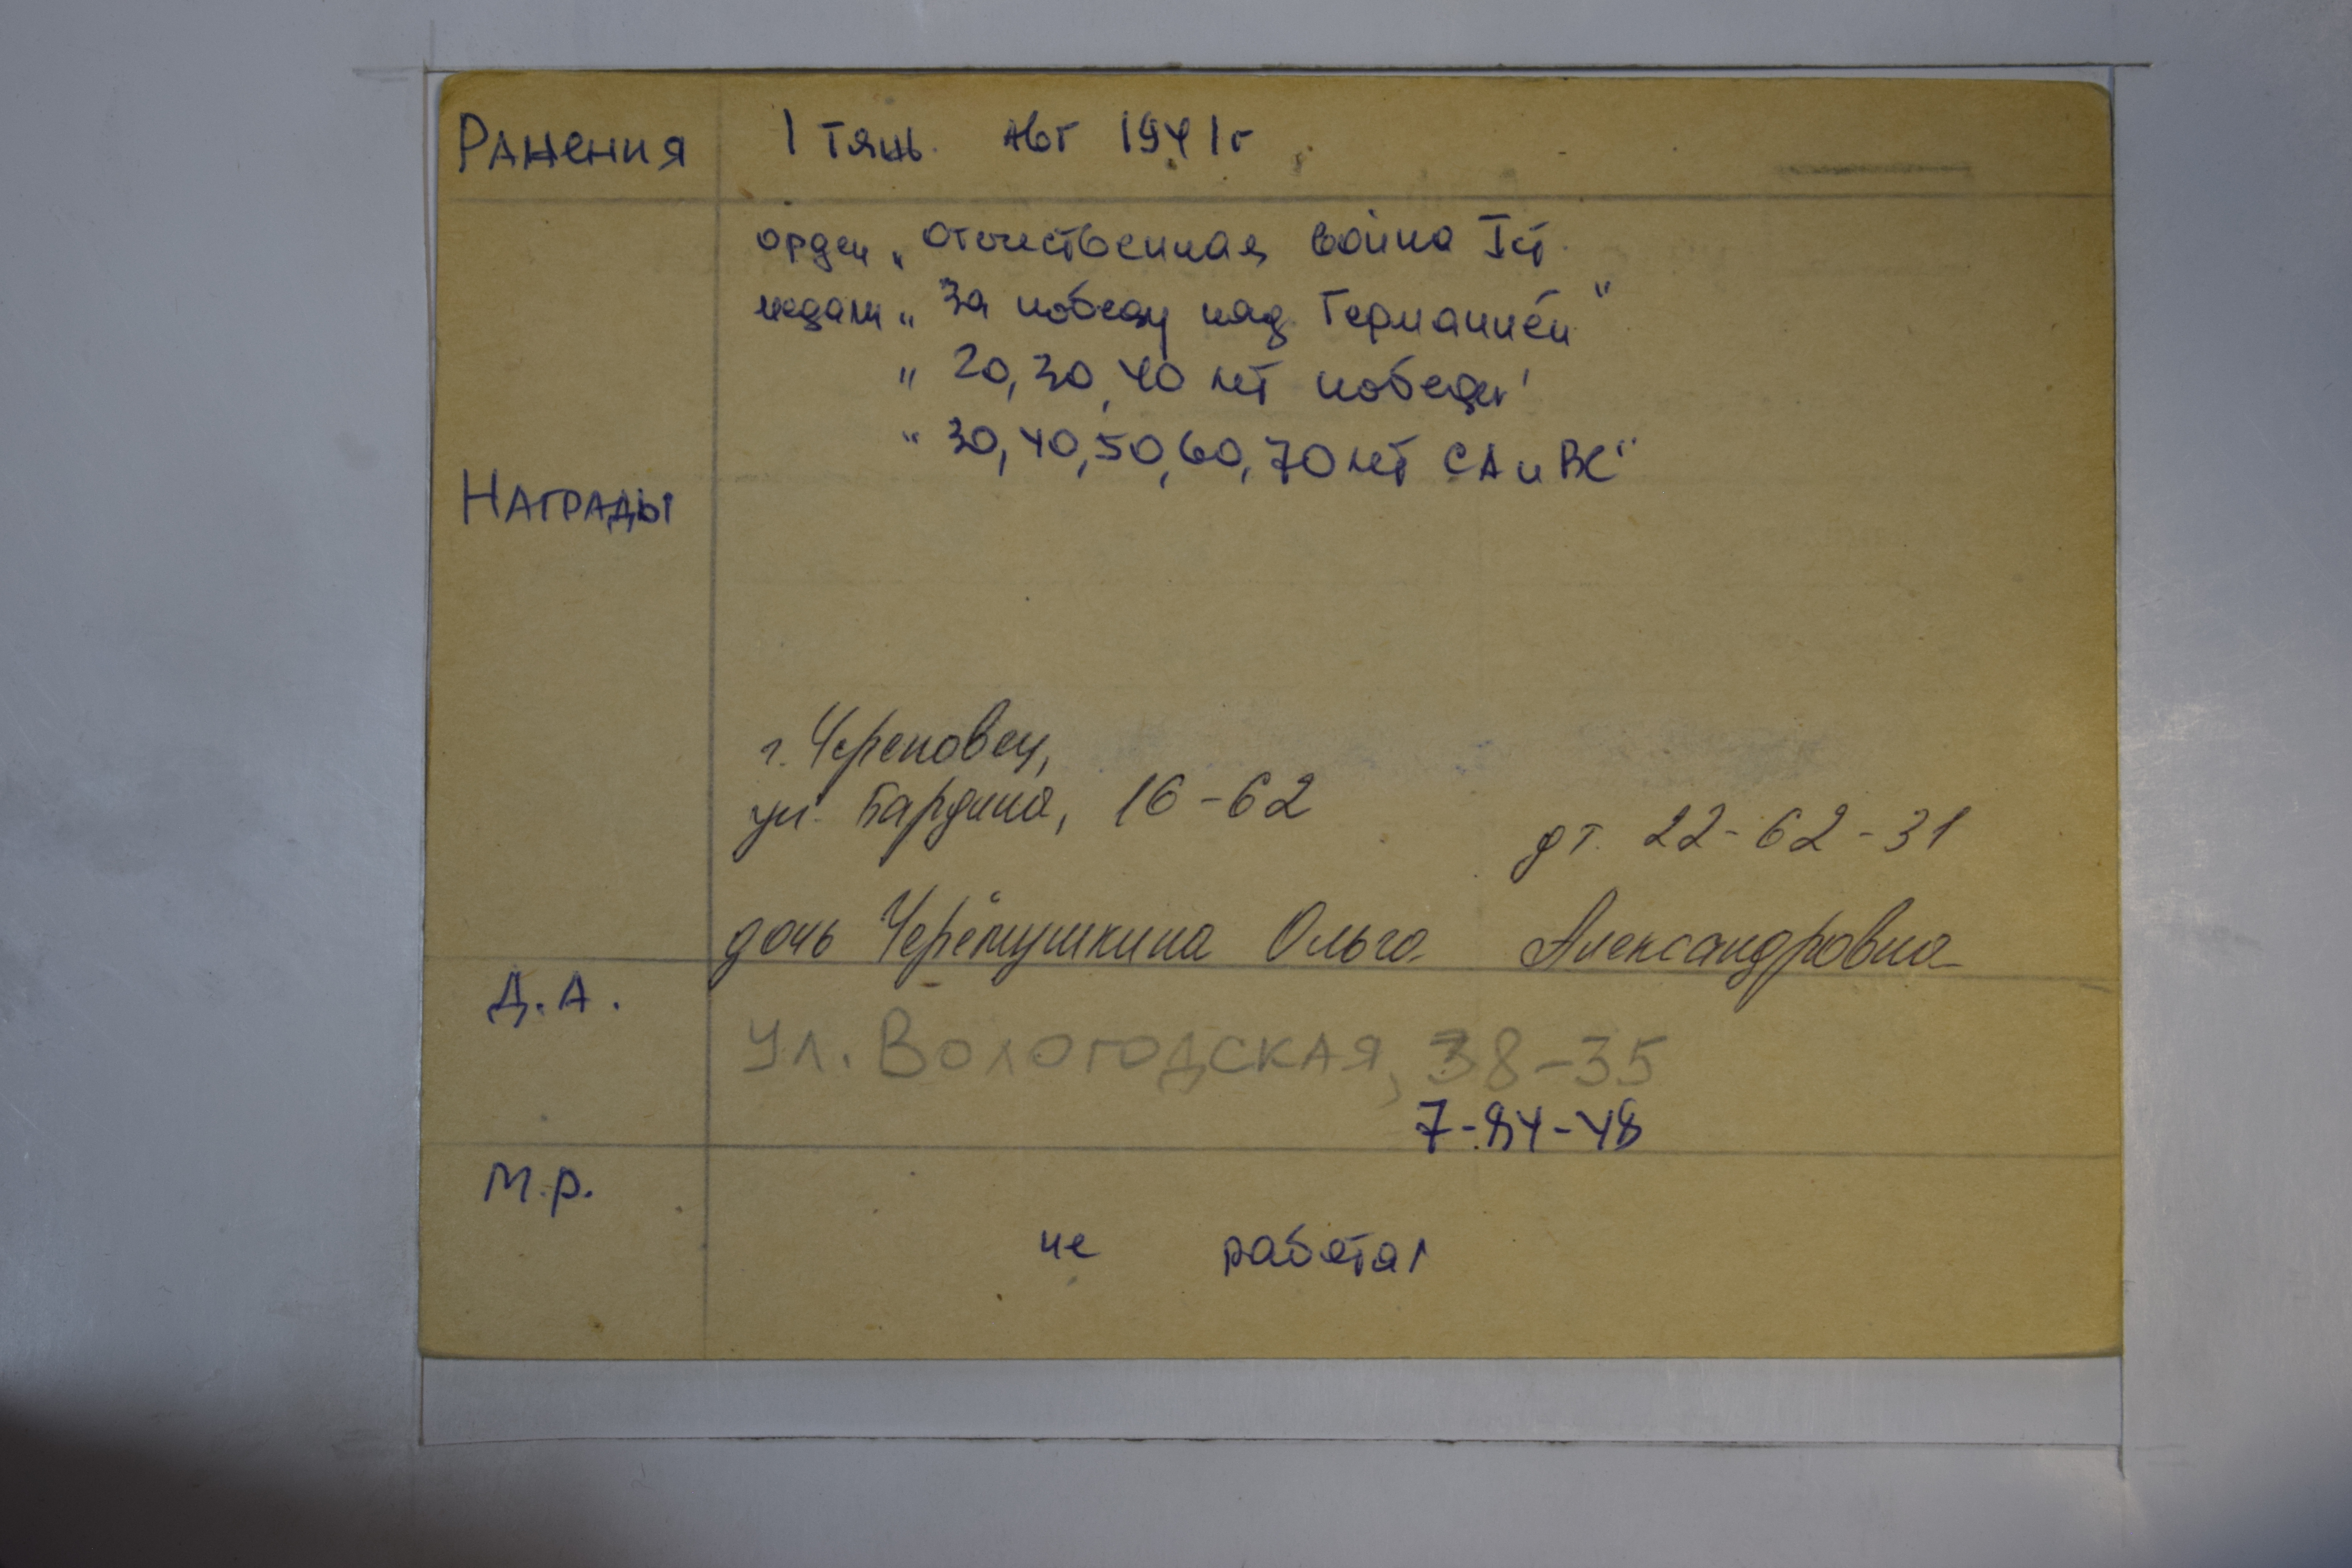 Ранения 1 тяж. авг 1941г
орден „Отечественная война I ст.
медали „За победу над Германией"
„20, 30, 40 лет победы"
„30, 40, 50, 60, 70 лет СА и ВС"
Награды
г. Череповец,
ул. Бардина, 16-62
дт. 22-62-31
дочь Черёмушкина Ольга Александровна
Д.А.
ул. Вологодская, 38-35
7-84-48
М.р.
не работал